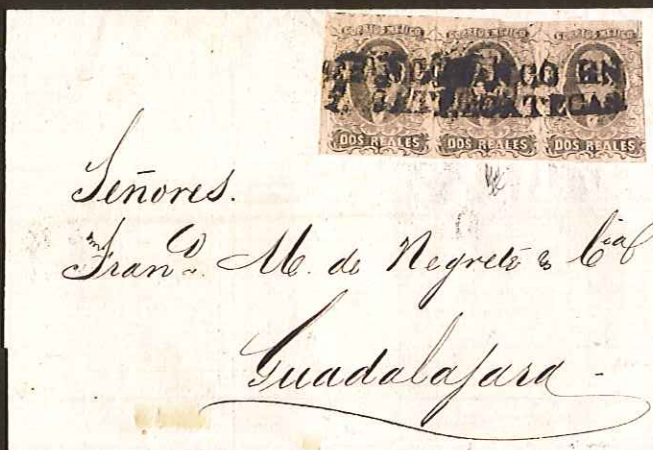 CORREOS MEJICO CORREOS MEJICO CORREOS MEJICO
FRANCO EN
ZACATECAS
DOS REALES DOS REALES DOS REALES
Señores.
Fran.co M. de Negrete & Cia
Guadalajara